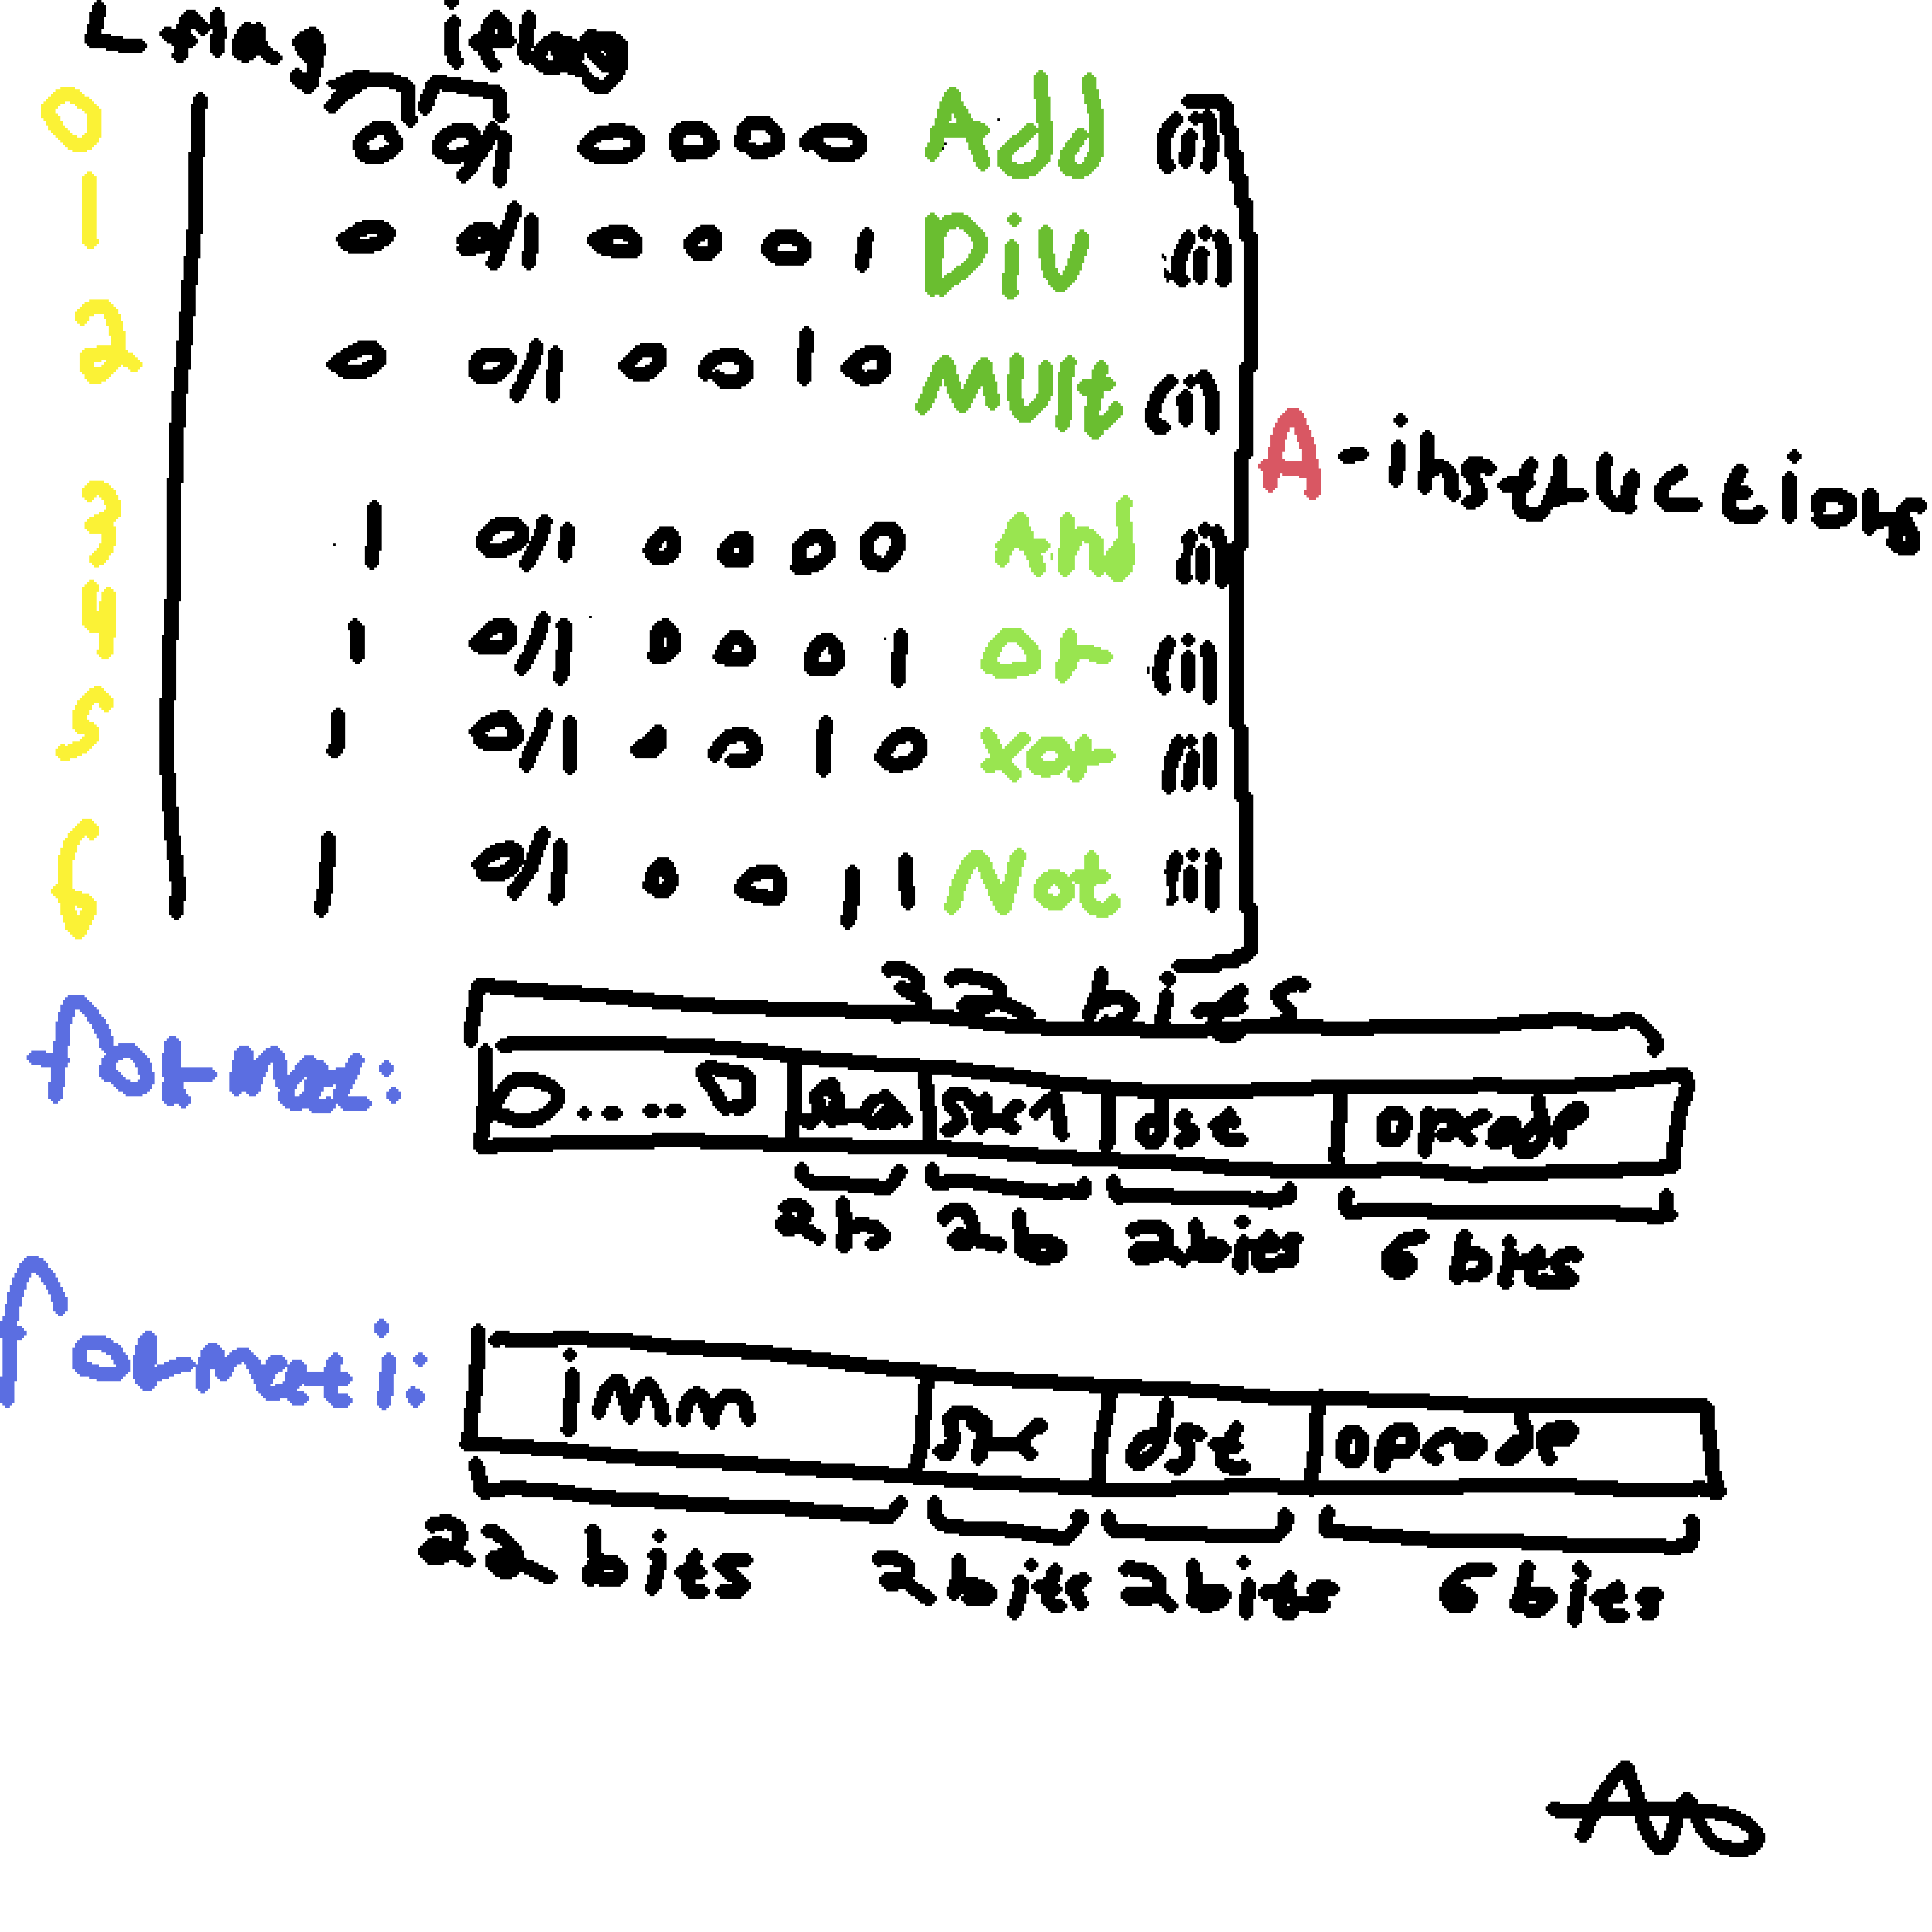 L flag iflag
0 0 0/1 0 0 0 0 Add (i)
1 0 0/1 0 0 0 1 Div (i)
2 0 0/1 0 0 1 0 Mult (i)
A-instructions
3 1 0/1 0 0 0 0 And (i)
4 1 0/1 0 0 0 1 Or (i)
5 1 0/1 0 0 1 0 Xor (i)
6 1 0/1 0 0 1 1 Not (i)
32 bits
format: 0.....0 src1 dst opcode
2b 2b 2bits 6 bits
format i: imm src dst opcode
22 bits 2bits 2bits 6 bits